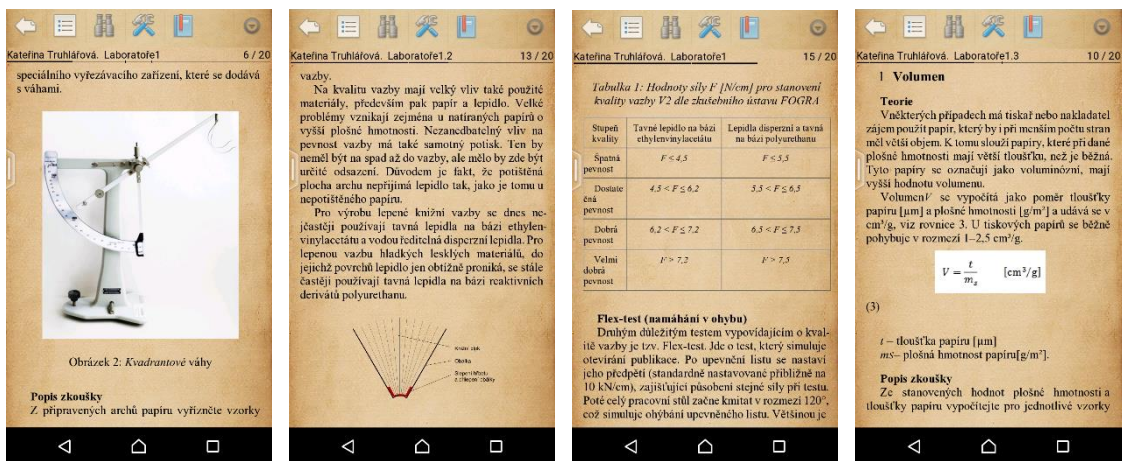 Kateřina Truhlářová. Laboratoře1 6 / 20
speciálního vyřezávacího zařízení, které se dodává
s váhami.
Obrázek 2: Kvadrantové váhy
Popis zkoušky
Z připravených archů papíru vyřízněte vzorky
Kateřina Truhlářová. Laboratoře1.2 13 / 20
vazby.
Na kvalitu vazby mají velký vliv také použité
materiály, především pak papír a lepidlo. Velké
problémy vznikají zejména u natíraných papírů o
vyšší plošné hmotnosti. Nezanedbatelný vliv na
pevnost vazby má také samotný potisk. Ten by
neměl být na spad až do vazby, ale mělo by zde být
určité odsazení. Důvodem je fakt, že potištěná
plocha archu nepřijímá lepidlo tak, jako je tomu u
nepotištěného papíru.
Pro výrobu lepené knižní vazby se dnes ne-
jčastěji používají tavná lepidla na bázi ethylen-
vinylacetátu a vodou ředitelná disperzní lepidla. Pro
lepenou vazbu hladkých lesklých materiálů, do
jejichž povrchů lepidlo jen obtížně proniká, se stále
častěji používají tavná lepidla na bázi reaktivních
derivátů polyurethanu.
Knižní blok
Obálka
Kateřina Truhlářová. Laboratoře1 15 / 20
Tabulka 1: Hodnoty síly F [N/cm] pro stanovení
kvality vazby V2 dle zkušebního ústavu FOGRA
Stupeň kvality Tavné lepidlo na bázi ethylenvinylacetátu Lepidla disperzní a tavná na bázi polyurethanu
Špatná pevnost F ≤ 4,5 F ≤ 5,5
Dostate čná pevnost 4,5 < F ≤ 6,2 5,5 < F ≤ 6,5
Dobrá pevnost 6,2 < F ≤ 7,2 6,5 < F ≤ 7,5
Velmi dobrá pevnost F > 7,2 F > 7,5
Flex-test (namáhání v ohybu)
Druhým důležitým testem vypovídajícím o kval-
itě vazby je tzv. Flex-test. Jde o test, který simuluje
otevírání publikace. Po upevnění listu se nastaví
jeho předpětí (standardně nastavované přibližně na
10 kN/cm), zajišťující působení stejné síly při testu.
Poté celý pracovní stůl začne kmitat v rozmezí 120°,
což simuluje ohýbání upevněného listu. Většinou je
Kateřina Truhlářová. Laboratoře1.3 10 / 20
1 Volumen
Teorie
Vněkterých případech má tiskař nebo nakladatel
zájem použít papír, který by i při menším počtu stran
měl větší objem. K tomu slouží papíry, které při dané
plošné hmotnosti mají větší tloušťku, než je běžná.
Tyto papíry se označují jako voluminózní, mají
vyšší hodnotu volumenu.
VolumenV se vypočítá jako poměr tloušťky
papíru [µm] a plošné hmotnosti [g/m²] a udává se v
cm³/g, viz rovnice 3. U tiskových papírů se běžně
pohybuje v rozmezí 1–2,5 cm³/g.
V = t/mₛ [cm³/g]
(3)
t – tloušťka papíru [µm]
ms– plošná hmotnost papíru[g/m²].
Popis zkoušky
Ze stanovených hodnot plošné hmotnosti a
tloušťky papíru vypočítejte pro jednotlivé vzorky